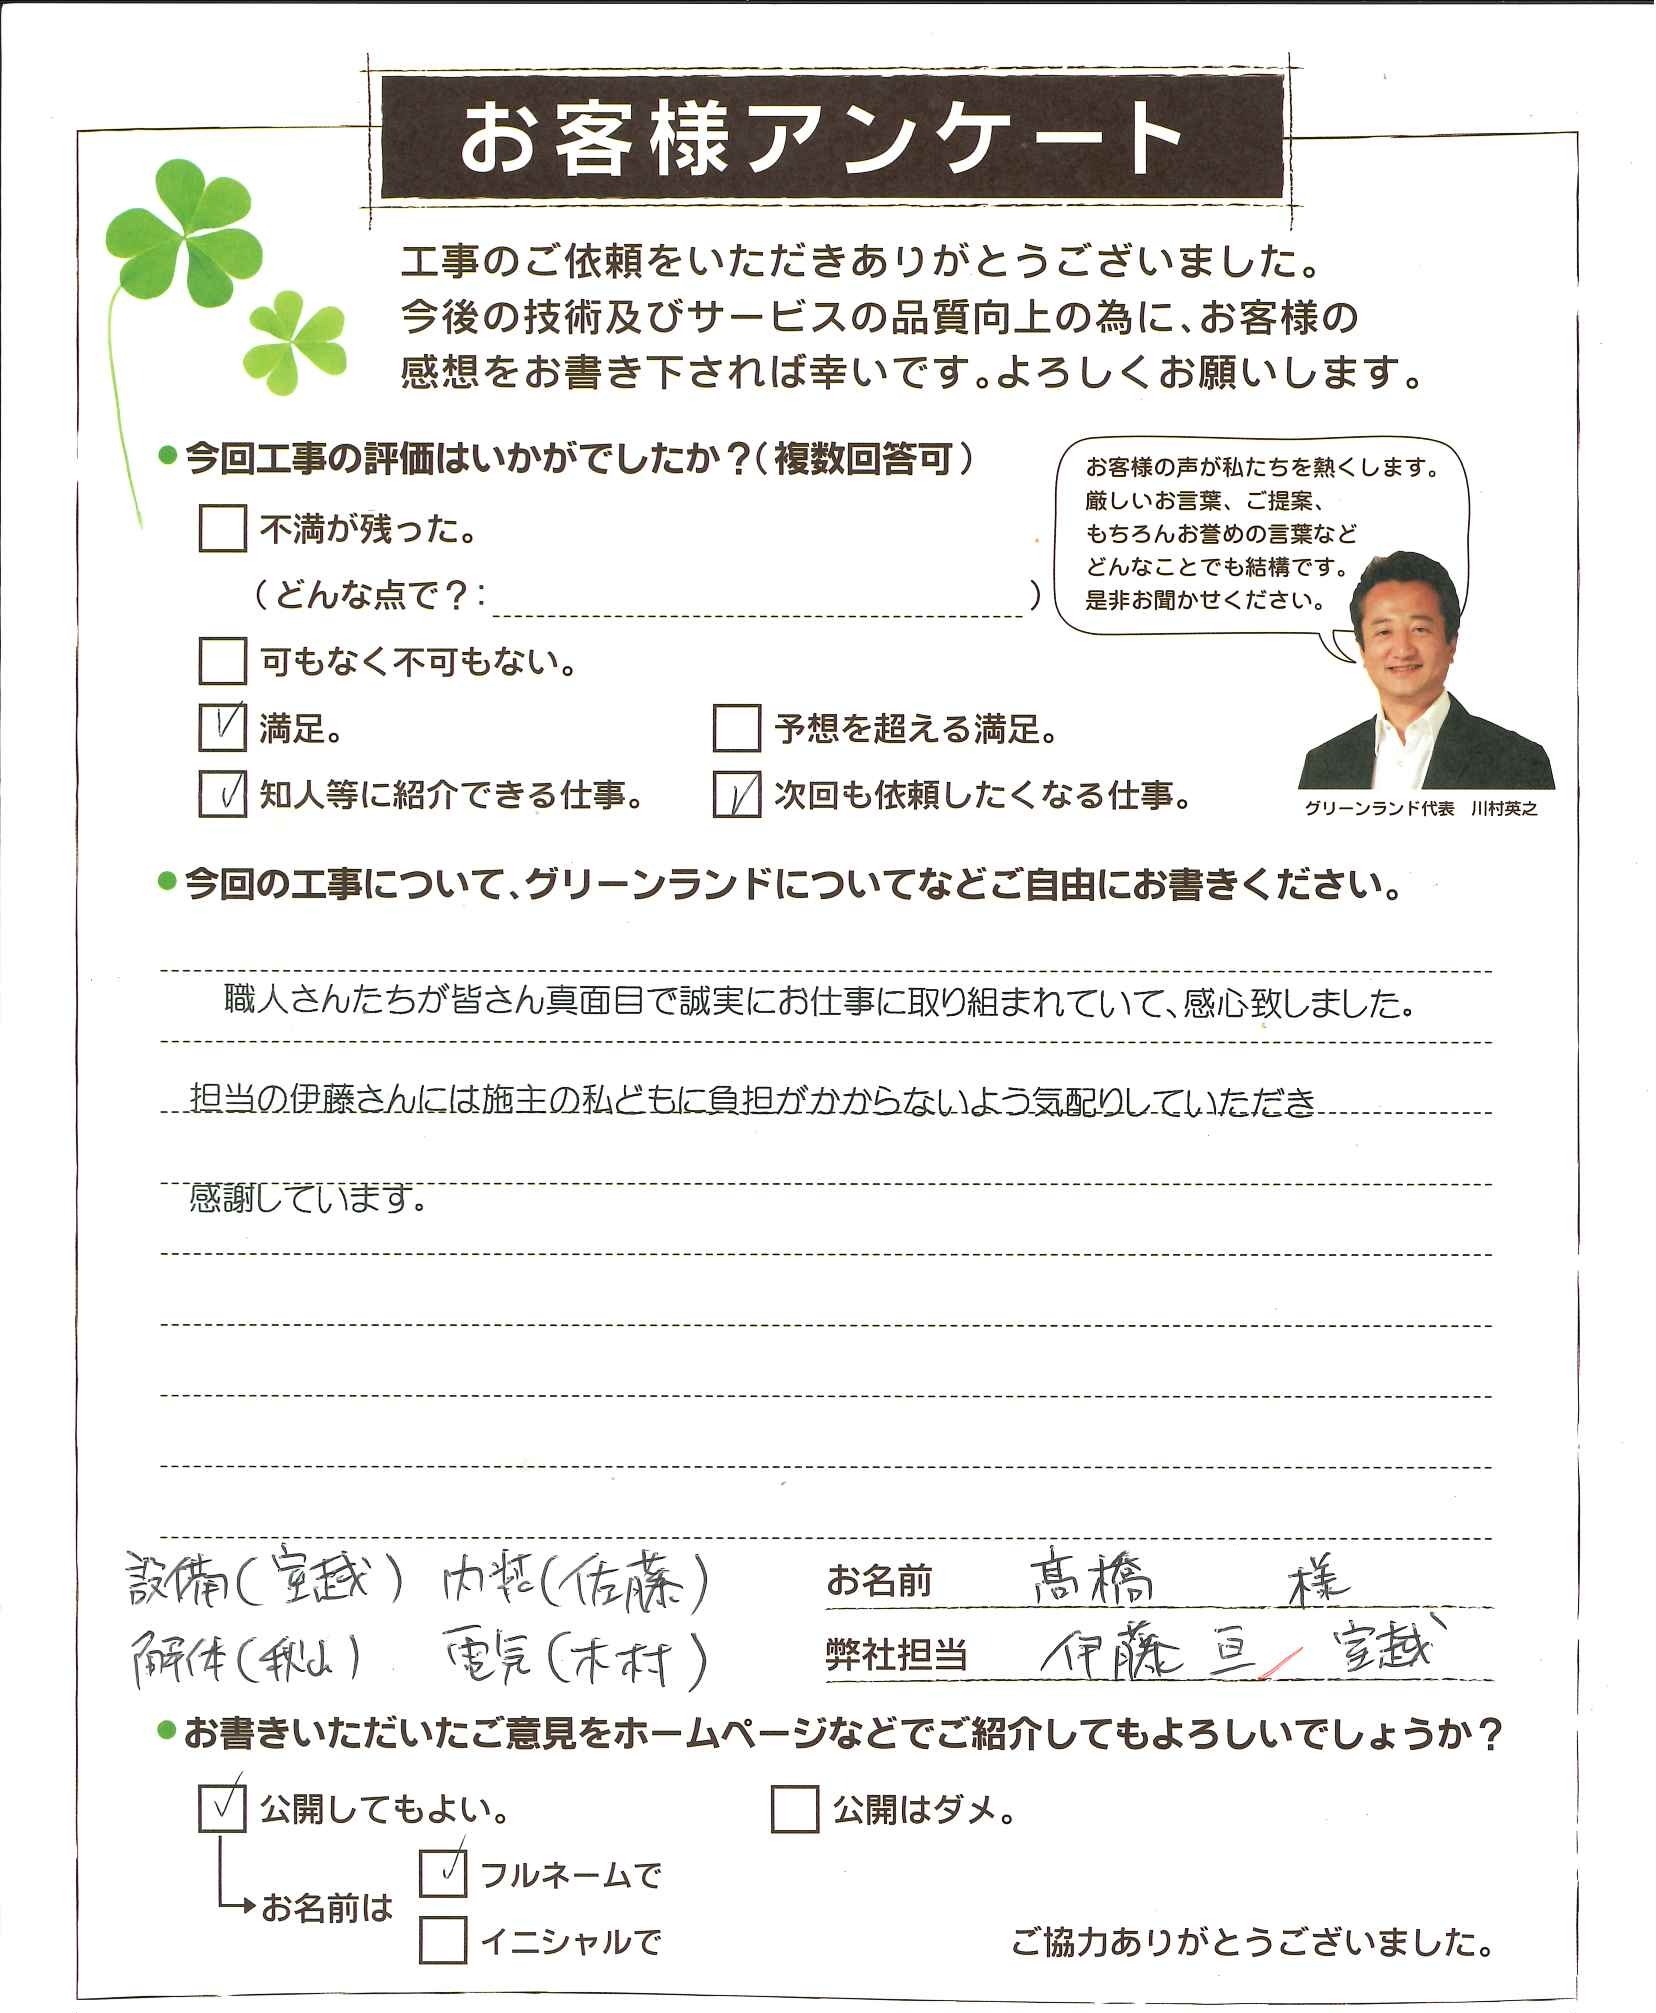 お客様アンケート
工事のご依頼をいただきありがとうございました。
今後の技術及びサービスの品質向上の為に、お客様の
感想をお書き下されば幸いです。よろしくお願いします。
●今回工事の評価はいかがでしたか？（複数回答可）
お客様の声が私たちを熱くします。
厳しいお言葉、ご提案、
もちろんお誉めの言葉など
どんなことでも結構です。
是非お聞かせください。
不満が残った。
（どんな点で？： ）
可もなく不可もない。
満足。
予想を超える満足。
知人等に紹介できる仕事。
次回も依頼したくなる仕事。
グリーンランド代表 川村英之
●今回の工事について、グリーンランドについてなどご自由にお書きください。
職人さんたちが皆さん真面目で誠実にお仕事に取り組まれていて、感心致しました。
担当の伊藤さんには施主の私どもに負担がかからないよう気配りしていただき
感謝しています。
設備(室越) 内装(佐藤)
解体(秋山) 電気(木村)
お名前 髙橋 様
弊社担当 伊藤 亘 / 室越
●お書きいただいたご意見をホームページなどでご紹介してもよろしいでしょうか？
公開してもよい。
公開はダメ。
お名前は
フルネームで
イニシャルで
ご協力ありがとうございました。